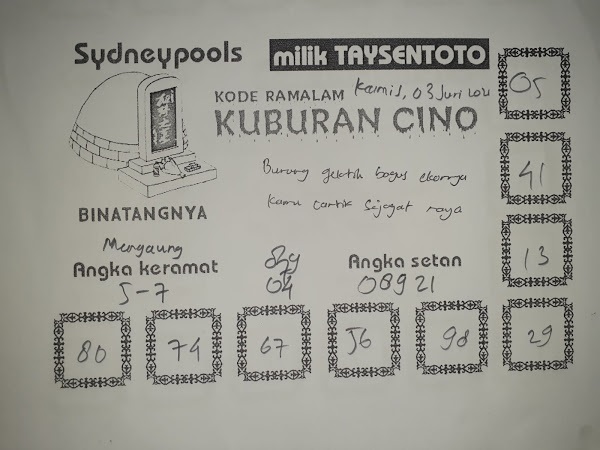 Sydneypools
milik TAYSENTOTO
KODE RAMALAM Kamis, 03 Juni 2021
KUBURAN CINO
Burung gelatik bagus ekornya
Kamu cantik sejagat raya
BINATANGNYA
Mengaung
Angka keramat
5-7
04
Angka setan
08921
05
41
13
80
74
67
56
98
29